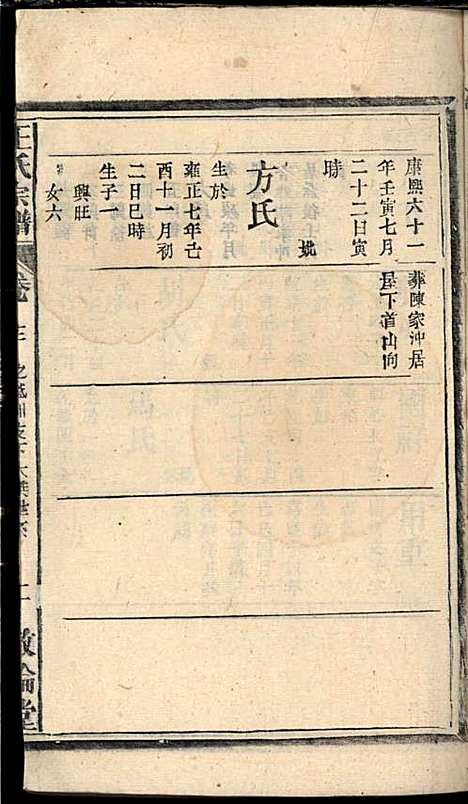 康熙六十一
年壬寅七月
二十二日寅
時
葬陳家沖居
屋下首山向
妣
方氏
生於
雍正七年己
酉十一月初
二日巳時
生子一
興旺
女六
王氏宗譜
敦倫堂